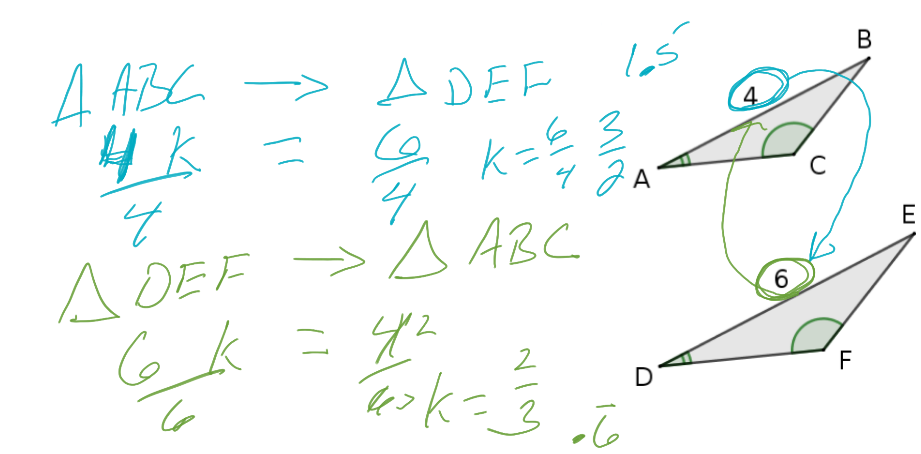 Δ ABC → Δ DEF 1.5
4k/4 = 6/4 k = 6/4 3/2
Δ DEF → Δ ABC
6k/6 = 4/6 2 k = 2/3 .6̅
B
4
A
C
E
6
D
F